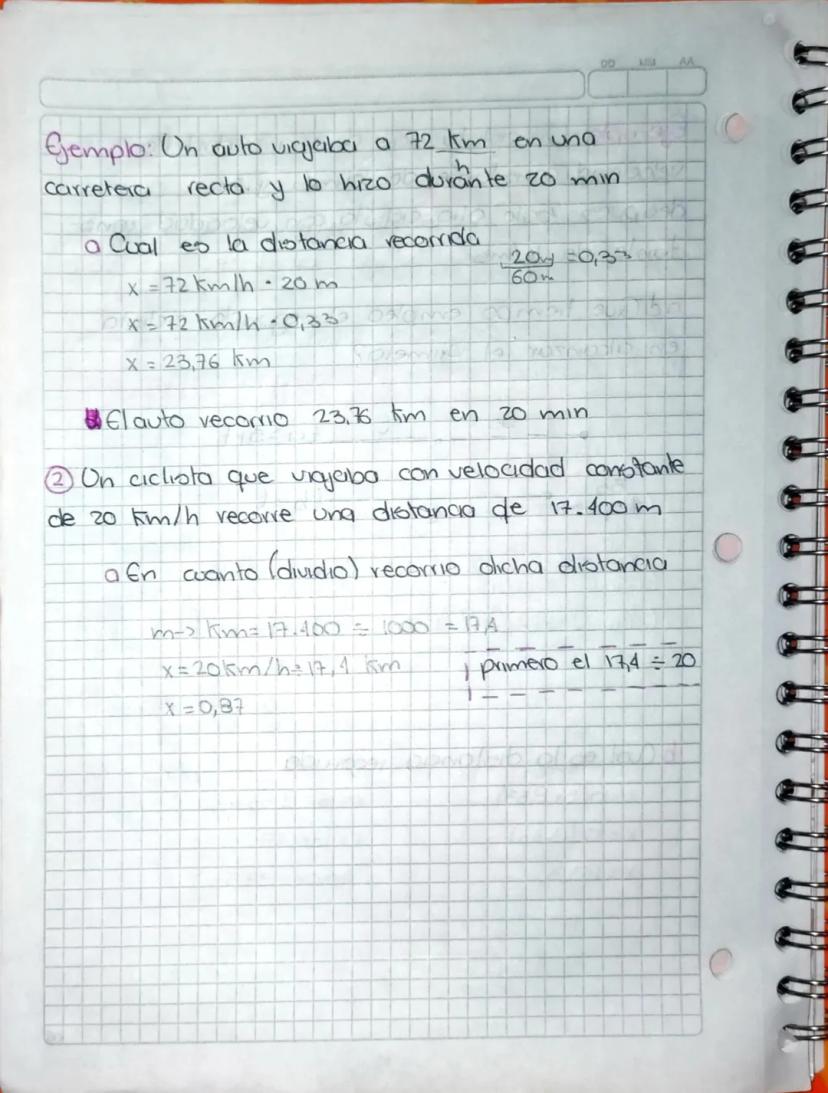 DD MM AA
Ejemplo: Un auto viajaba a 72 Km/h en una
carretera recta y lo hizo durante 20 min
a Cual es la distancia recorrida
x = 72 Km/h · 20 m
20m/60m = 0,33
x = 72 Km/h · 0,33
x = 23,76 Km
El auto recorrio 23.76 Km en 20 min
2 Un ciclista que viajaba con velocidad constante
de 20 Km/h recorre una distancia de 17.400 m
a En cuanto (dividio) recorrio dicha distancia
m -> Km = 17.400 ÷ 1000 = 17,4
x = 20 Km/h ÷ 17,4 Km
primero el 17,4 ÷ 20
x = 0,87